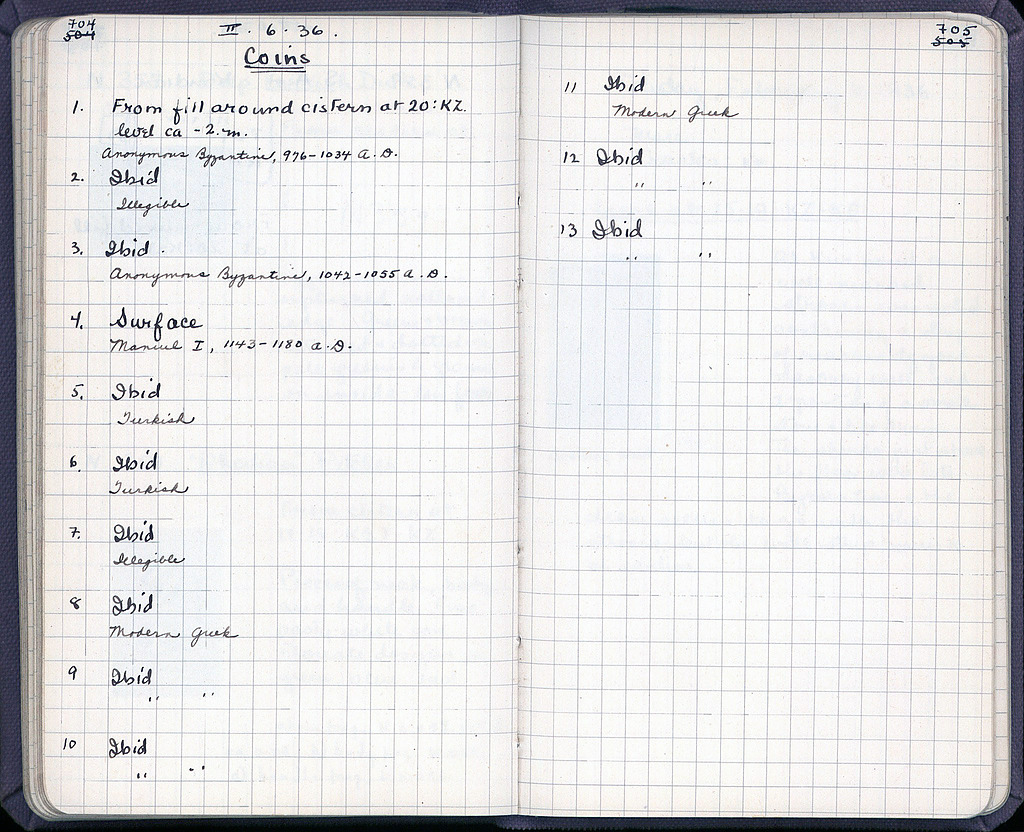 704
504
III. 6. 36.
Coins
1. From fill around cistern at 20:KZ.
level ca -2.m.
Anonymous Byzantine, 976-1034 A.D.
2. Ibid
Illegible
3. Ibid.
Anonymous Byzantine, 1042-1055 A.D.
4. Surface
Manuel I, 1143-1180 A.D.
5. Ibid
Turkish
6. Ibid
Turkish
7. Ibid
Illegible
8 Ibid
Modern Greek
9 Ibid
" "
10 Ibid
" "
705
505
11 Ibid
Modern Greek
12 Ibid
" "
13 Ibid
" "